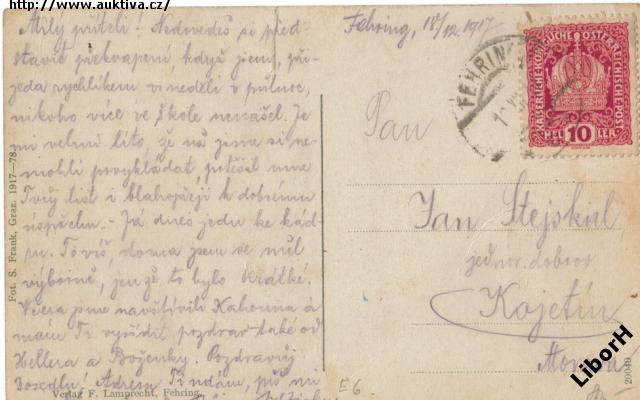 https://www.auktiva.cz/
Milý příteli! Nedovedeš si před-
stavit překvapení, když jsem, při-
jeda rychlíkem v neděli v půlnoci,
nikoho více ve škole nenašel. Je
mi velmi líto, že už jsme si ne-
mohli
Tvůj list i blahopřeji k dobrému
úspěchu. – Já dnes jedu ke kád-
ru. To víš, doma jsem se měl
výborně, jen že to bylo krátké.
Včera jsme navštívili Kahouna a
mám Ti vyřídit pozdrav také od
Hellera a Boženky. Pozdravuj
Adresu Ti udám, piš mi
Fehring, 18/12. 1917
FEHRING
KAISERLICHE KÖNIGLICHE ÖSTERREICHISCHE POST
HEL 10 LER
Pan
Jan Stejskal
jednor. dobrov.
Kojetín
Morava
Fot. S. Frank, Graz. 1917—78
Verlag F. Lamprecht, Fehring.
E6
20040
LiborH